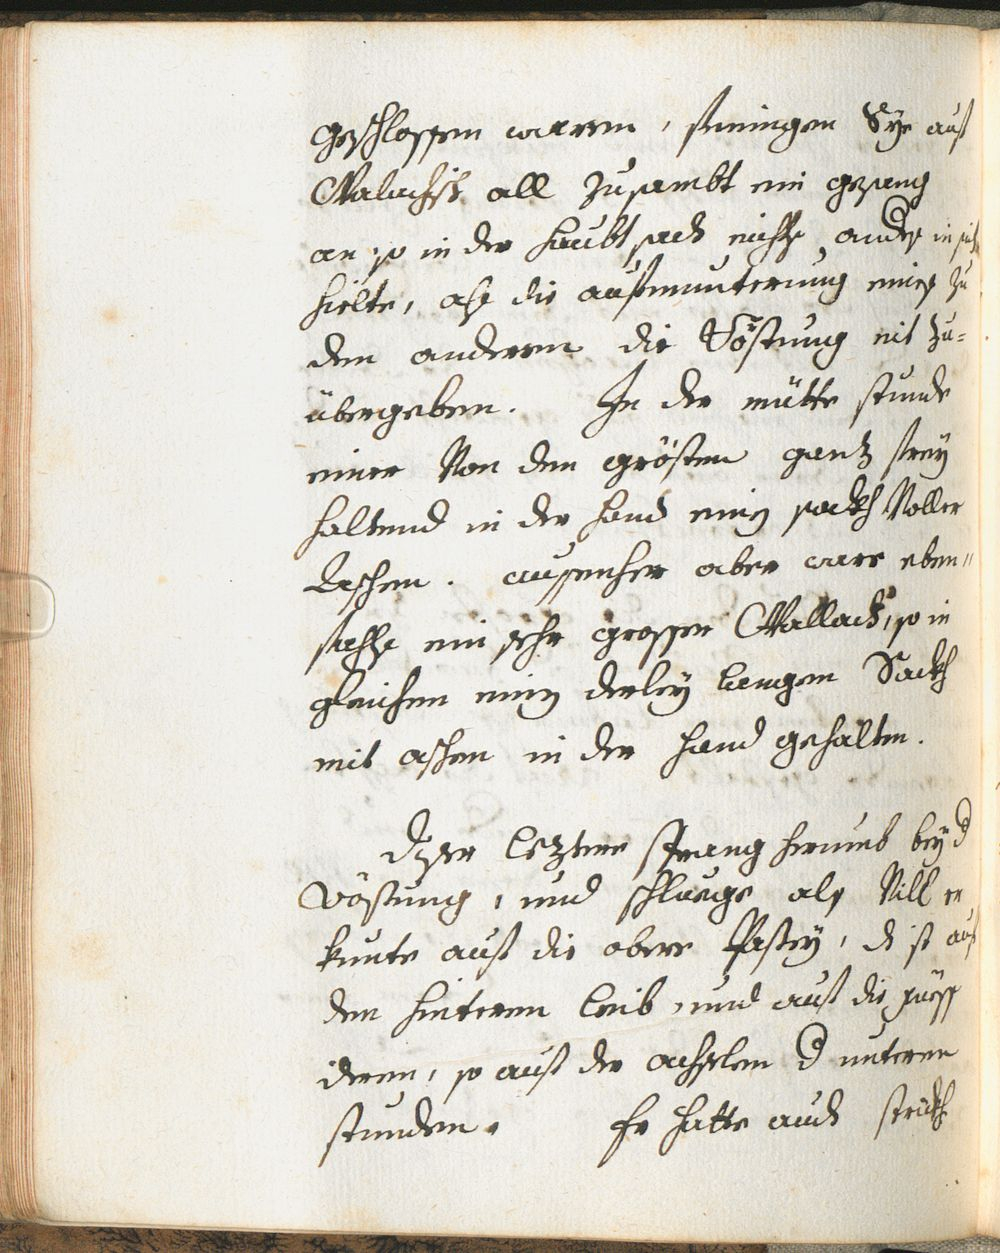 geschlossen waren, fiengen Sye auf
Walachisch all zusambt ein gesang
an so in der haubtsach nichts anders in sich
hielte, als die aufmunterung eines zu
den anderen die Vöstung nit zu=
übergeben. In der mütte stunde
einer Von den grösten gantz frey
haltend in der hand einen sackh Voller
Aschen. aussenher aber ware eben"
fahls ein sehr grosser Wallach, so in
gleichen einen derley langen Sackh
mit aschen in der hand gehalten.
Diser leztere sprang herumb bey d
Vöstung, und schluege als Vill er
kunte auf die obere Pastey, d ist auf
den hinteren leib, und auf die füess
deren, so auf der achslen d unteren
stunden. Er hatte auch strickh